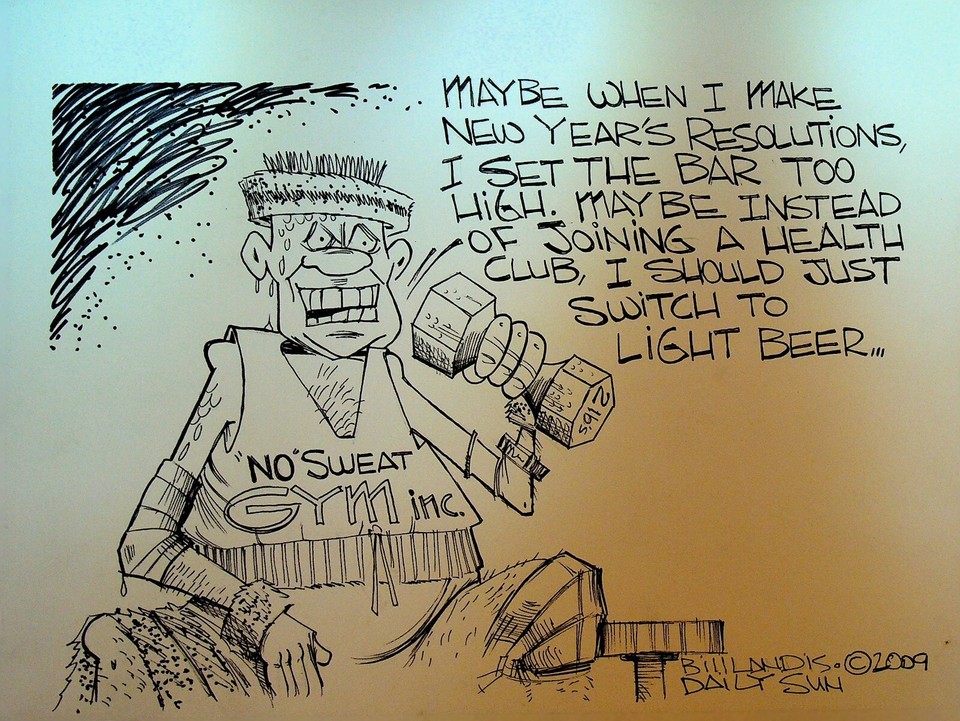 MAYBE WHEN I MAKE
NEW YEAR'S RESOLUTIONS,
I SET THE BAR TOO
HIGH. MAYBE INSTEAD
OF JOINING A HEALTH
CLUB, I SHOULD JUST
SWITCH TO
LIGHT BEER...
2 lbs
"NO" SWEAT
GYM inc.
Bill LANDIS. ©2009
DAILY SUN